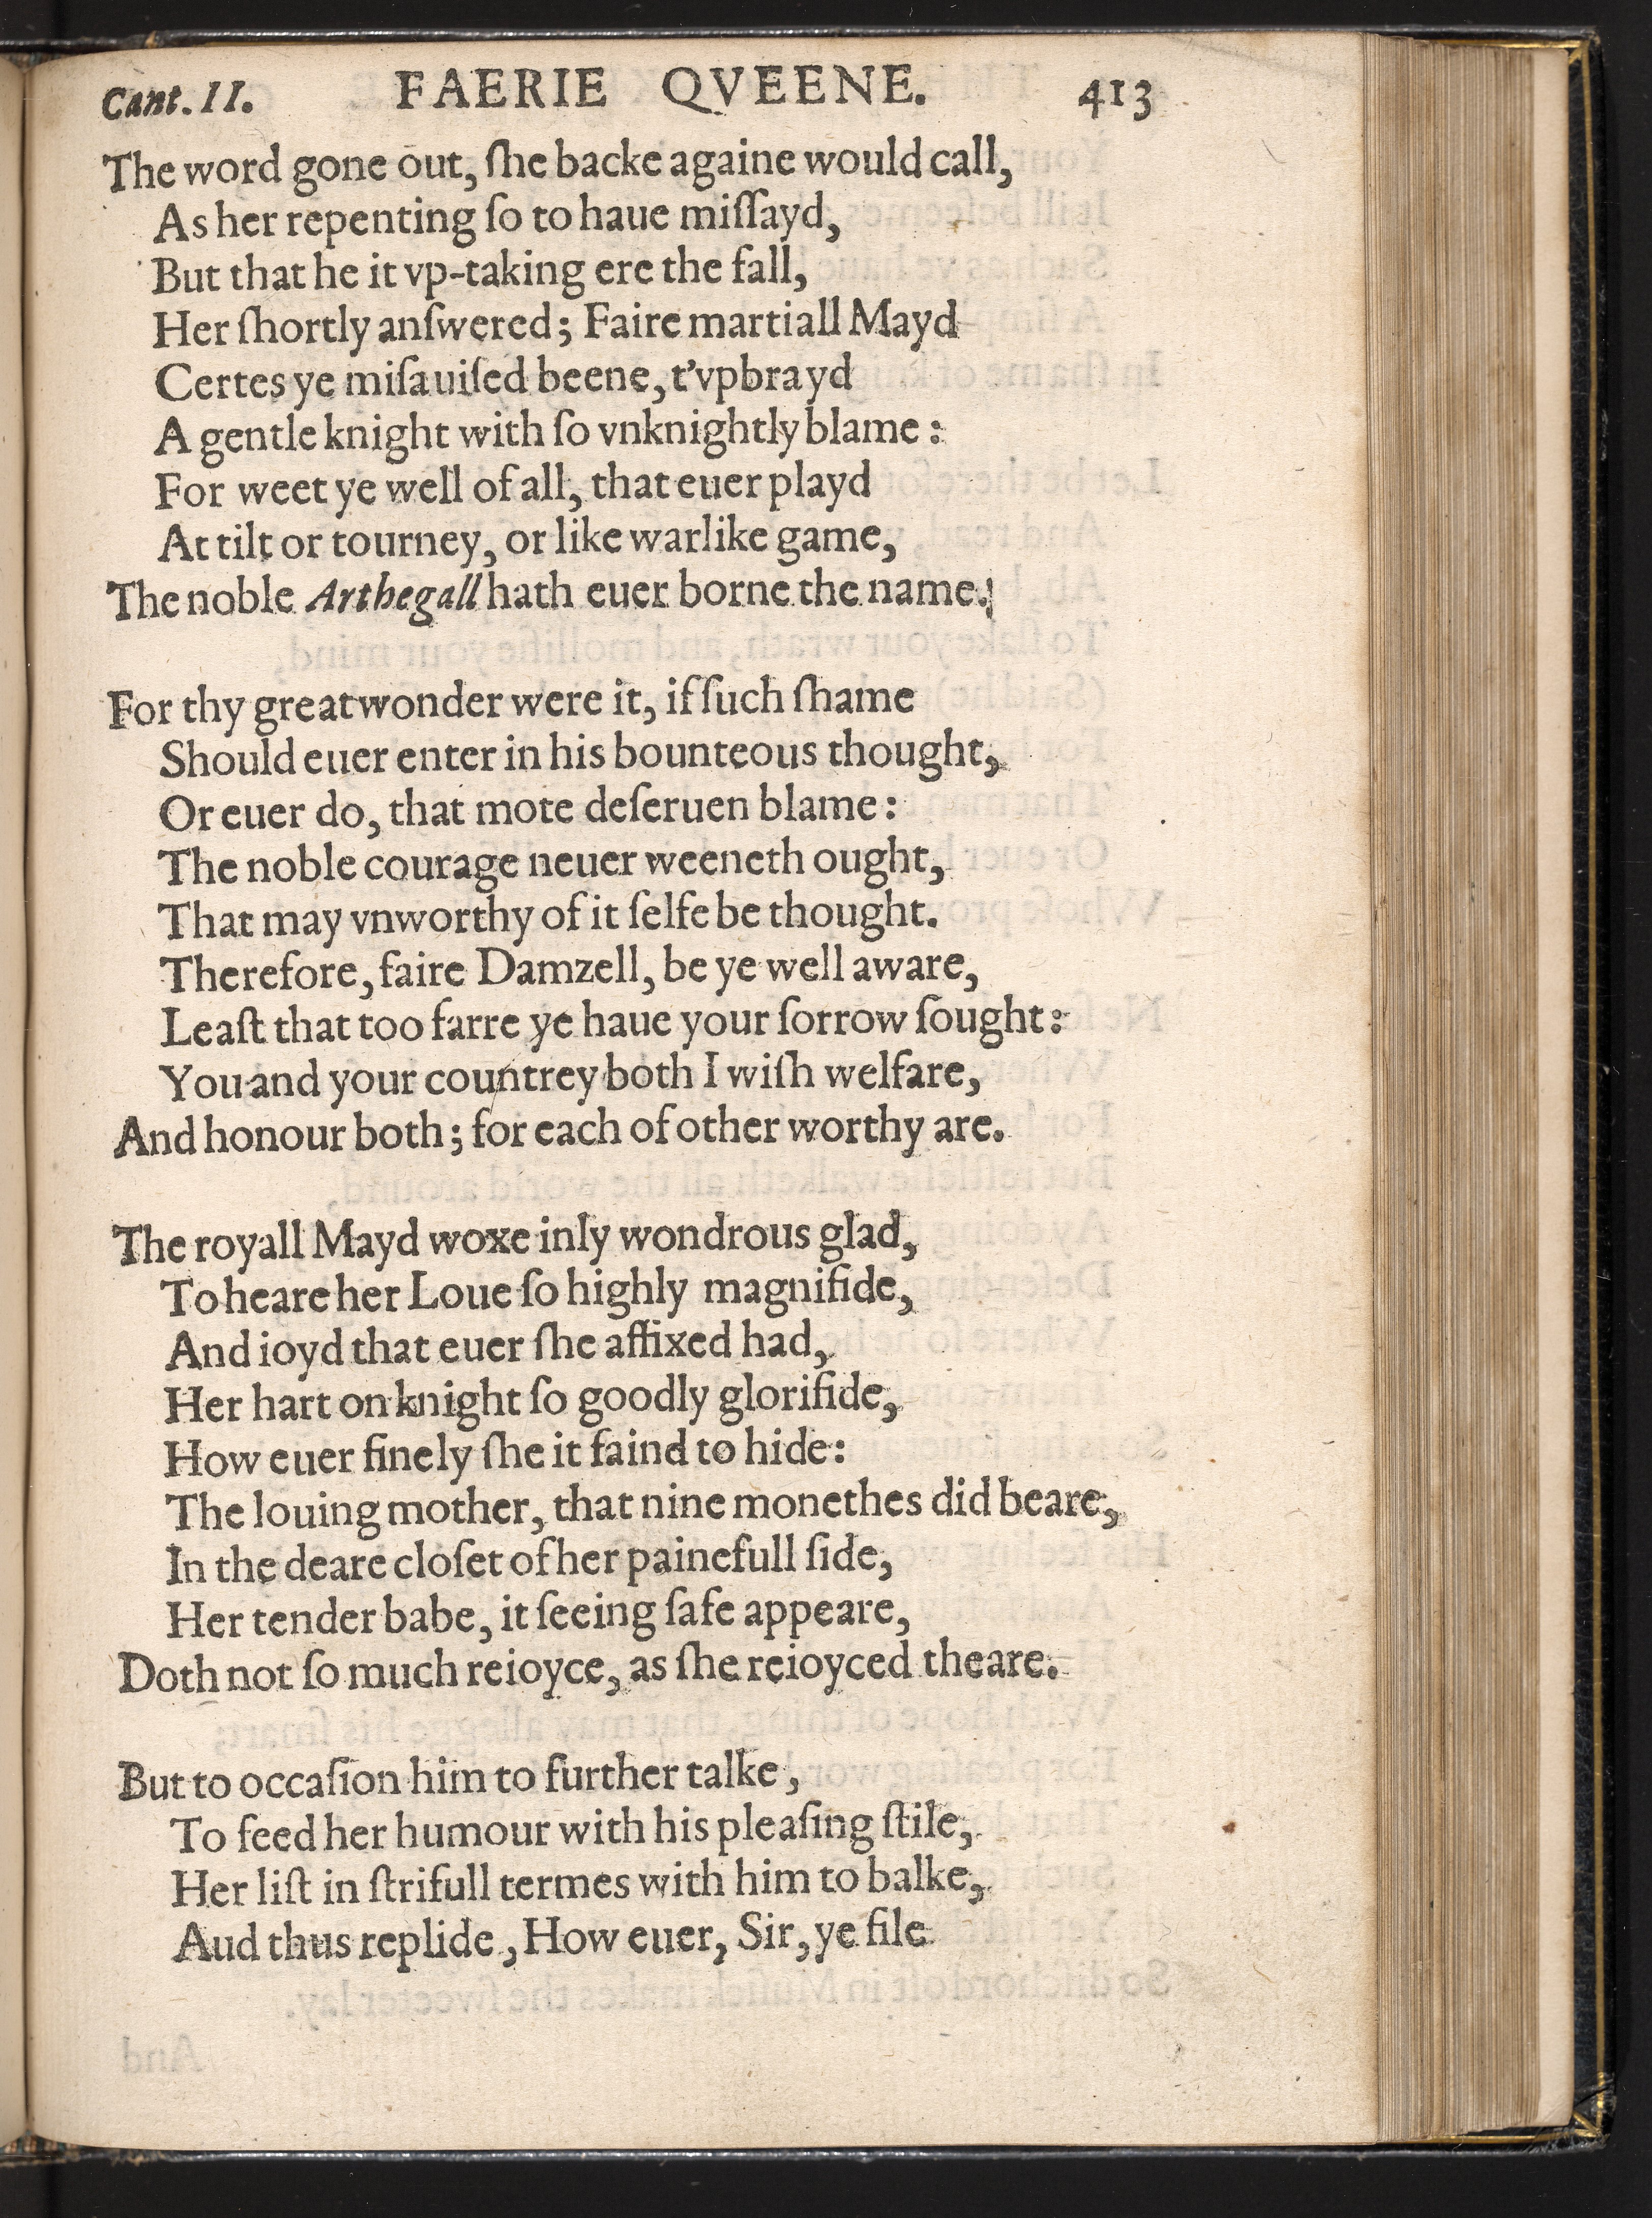 Cant. II. FAERIE QVEENE. 413
The word gone out, ſhe backe againe would call,
As her repenting ſo to haue miſſayd,
But that he it vp-taking ere the fall,
Her ſhortly anſwered; Faire martiall Mayd
Certes ye miſauiſed beene, t'vpbrayd
A gentle knight with ſo vnknightly blame:
For weet ye well of all, that euer playd
At tilt or tourney, or like warlike game,
The noble Arthegall hath euer borne the name.
For thy great wonder were it, if ſuch ſhame
Should euer enter in his bounteous thought,
Or euer do, that mote deſeruen blame:
The noble courage neuer weeneth ought,
That may vnworthy of it ſelfe be thought.
Therefore, faire Damzell, be ye well aware,
Leaſt that too farre ye haue your ſorrow ſought:
You and your countrey both I wiſh welfare,
And honour both; for each of other worthy are.
The royall Mayd woxe inly wondrous glad,
To heare her Loue ſo highly magnifide,
And ioyd that euer ſhe affixed had,
Her hart on knight ſo goodly glorifide,
How euer finely ſhe it faind to hide:
The louing mother, that nine monethes did beare,
In the deare cloſet of her painefull ſide,
Her tender babe, it ſeeing ſafe appeare,
Doth not ſo much reioyce, as ſhe reioyced theare.
But to occaſion him to further talke,
To feed her humour with his pleaſing ſtile,
Her liſt in ſtrifull termes with him to balke,
Aud thus replide, How euer, Sir, ye file